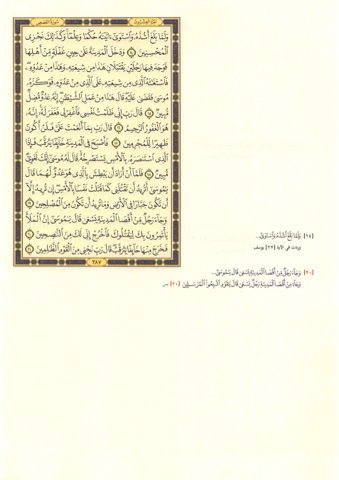 الجزء العشرون سورة القصص
وَلَمَّا بَلَغَ أَشُدَّهُۥ وَٱسْتَوَىٰٓ ءَاتَيْنَٰهُ حُكْمًا وَعِلْمًا ۚ وَكَذَٰلِكَ نَجْزِى
ٱلْمُحْسِنِينَ ١٤ وَدَخَلَ ٱلْمَدِينَةَ عَلَىٰ حِينِ غَفْلَةٍ مِّنْ أَهْلِهَا
فَوَجَدَ فِيهَا رَجُلَيْنِ يَقْتَتِلَانِ هَٰذَا مِن شِيعَتِهِۦ وَهَٰذَا مِنْ عَدُوِّهِۦ ۖ
فَٱسْتَغَٰثَهُ ٱلَّذِى مِن شِيعَتِهِۦ عَلَى ٱلَّذِى مِنْ عَدُوِّهِۦ فَوَكَزَهُۥ
مُوسَىٰ فَقَضَىٰ عَلَيْهِ ۖ قَالَ هَٰذَا مِنْ عَمَلِ ٱلشَّيْطَٰنِ ۖ إِنَّهُۥ عَدُوٌّ مُّضِلٌّ
مُّبِينٌ ١٥ قَالَ رَبِّ إِنِّى ظَلَمْتُ نَفْسِى فَٱغْفِرْ لِى فَغَفَرَ لَهُۥٓ ۚ إِنَّهُۥ
هُوَ ٱلْغَفُورُ ٱلرَّحِيمُ ١٦ قَالَ رَبِّ بِمَآ أَنْعَمْتَ عَلَىَّ فَلَنْ أَكُونَ
ظَهِيرًا لِّلْمُجْرِمِينَ ١٧ فَأَصْبَحَ فِى ٱلْمَدِينَةِ خَآئِفًا يَتَرَقَّبُ فَإِذَا
ٱلَّذِى ٱسْتَنصَرَهُۥ بِٱلْأَمْسِ يَسْتَصْرِخُهُۥ ۚ قَالَ لَهُۥ مُوسَىٰٓ إِنَّكَ لَغَوِىٌّ
مُّبِينٌ ١٨ فَلَمَّآ أَنْ أَرَادَ أَن يَبْطِشَ بِٱلَّذِى هُوَ عَدُوٌّ لَّهُمَا قَالَ
يَٰمُوسَىٰٓ أَتُرِيدُ أَن تَقْتُلَنِى كَمَا قَتَلْتَ نَفْسًۢا بِٱلْأَمْسِ ۖ إِن تُرِيدُ إِلَّآ
أَن تَكُونَ جَبَّارًا فِى ٱلْأَرْضِ وَمَا تُرِيدُ أَن تَكُونَ مِنَ ٱلْمُصْلِحِينَ ١٩
وَجَآءَ رَجُلٌ مِّنْ أَقْصَا ٱلْمَدِينَةِ يَسْعَىٰ قَالَ يَٰمُوسَىٰٓ إِنَّ ٱلْمَلَأَ
يَأْتَمِرُونَ بِكَ لِيَقْتُلُوكَ فَٱخْرُجْ إِنِّى لَكَ مِنَ ٱلنَّٰصِحِينَ ٢٠
فَخَرَجَ مِنْهَا خَآئِفًا يَتَرَقَّبُ ۖ قَالَ رَبِّ نَجِّنِى مِنَ ٱلْقَوْمِ ٱلظَّٰلِمِينَ ٢١
٣٨٧
[١٤] وَلَمَّا بَلَغَ أَشُدَّهُۥ وَٱسْتَوَىٰٓ...
وردت في الآية [٢٢] يوسف
[٢٠] وَجَآءَ رَجُلٌ مِّنْ أَقْصَا ٱلْمَدِينَةِ يَسْعَىٰ قَالَ يَٰمُوسَىٰٓ...
وَجَآءَ مِنْ أَقْصَا ٱلْمَدِينَةِ رَجُلٌ يَسْعَىٰ قَالَ يَٰقَوْمِ ٱتَّبِعُوا۟ ٱلْمُرْسَلِينَ [٢٠] يس